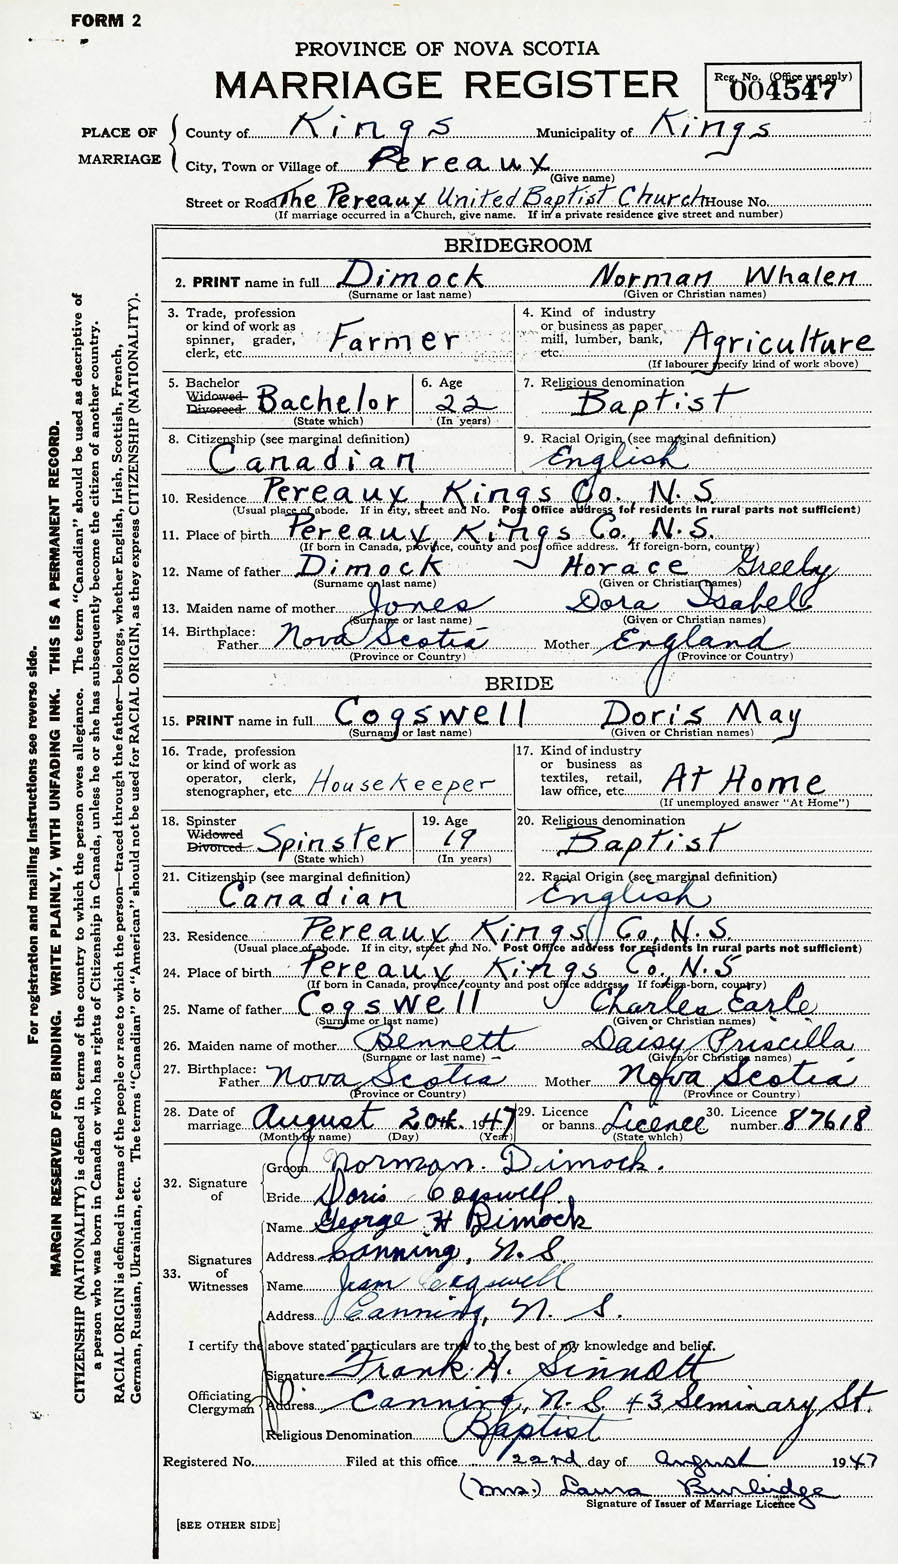 FORM 2
PROVINCE OF NOVA SCOTIA
MARRIAGE REGISTER
Reg. No. (Office use only)
004547
PLACE OF MARRIAGE
County of Kings Municipality of Kings
City, Town or Village of Pereaux
(Give name)
Street or Road The Pereaux United Baptist Church House No.
(If marriage occurred in a Church, give name. If in a private residence give street and number)
BRIDEGROOM
2. PRINT name in full Dimock Norman Whalen
(Surname or last name) (Given or Christian names)
3. Trade, profession or kind of work as spinner, grader, clerk, etc. Farmer
4. Kind of industry or business as paper mill, lumber, bank, etc. Agriculture
(If labourer specify kind of work above)
5. Bachelor Widowed Divorced Bachelor
(State which)
6. Age 22
(In years)
7. Religious denomination Baptist
8. Citizenship (see marginal definition) Canadian
9. Racial Origin (see marginal definition) English
10. Residence Pereaux, Kings Co., N.S.
(Usual place of abode. If in city, street and No. Post Office address for residents in rural parts not sufficient)
11. Place of birth Pereaux Kings Co., N.S.
(If born in Canada, province, county and post office address. If foreign-born, country)
12. Name of father Dimock Horace Greeley
(Surname or last name) (Given or Christian names)
13. Maiden name of mother Jones Dora Isabel
(Surname or last name) (Given or Christian names)
14. Birthplace: Father Nova Scotia Mother England
(Province or Country) (Province or Country)
BRIDE
15. PRINT name in full Cogswell Doris May
(Surname or last name) (Given or Christian names)
16. Trade, profession or kind of work as operator, clerk, stenographer, etc. Housekeeper
17. Kind of industry or business as textiles, retail, law office, etc. At Home
(If unemployed answer "At Home")
18. Spinster Widowed Divorced Spinster
(State which)
19. Age 19
(In years)
20. Religious denomination Baptist
21. Citizenship (see marginal definition) Canadian
22. Racial Origin (see marginal definition) English
23. Residence Pereaux Kings Co., N.S.
(Usual place of abode. If in city, street and No. Post Office address for residents in rural parts not sufficient)
24. Place of birth Pereaux Kings Co., N.S
(If born in Canada, province/county and post office address. If foreign-born, country)
25. Name of father Cogswell Charles Earle
(Surname or last name) (Given or Christian names)
26. Maiden name of mother Bennett Daisy Priscilla
(Surname or last name) (Given or Christian names)
27. Birthplace: Father Nova Scotia Mother Nova Scotia
(Province or Country) (Province or Country)
28. Date of marriage August 20th 1947
(Month by name) (Day) (Year)
29. Licence or banns Licence
(State which)
30. Licence number 87618
32. Signature of
Groom Norman Dimock.
Bride Doris Cogswell
33. Signatures of Witnesses
Name George H Dimock
Address Canning, N.S.
Name Jean Cogswell
Address Canning, N. S.
I certify the above stated particulars are true to the best of my knowledge and belief.
Officiating Clergyman
Signature Frank H. Sinnott
Address Canning, N.S. 43 Seminary St.
Religious Denomination Baptist
Registered No. Filed at this office 22nd day of August 1947
(Mrs.) Laura Burbidge
Signature of Issuer of Marriage Licence
[SEE OTHER SIDE]
For registration and mailing instructions see reverse side.
MARGIN RESERVED FOR BINDING. WRITE PLAINLY, WITH UNFADING INK. THIS IS A PERMANENT RECORD.
CITIZENSHIP (NATIONALITY) is defined in terms of the country to which the person owes allegiance. The term "Canadian" should be used as descriptive of
a person who was born in Canada or who has rights of Citizenship in Canada, unless he or she has subsequently become the citizen of another country.
RACIAL ORIGIN is defined in terms of the people or race to which the person—traced through the father—belongs, whether English, Irish, Scottish, French,
German, Russian, Ukrainian, etc. The terms "Canadian" or "American" should not be used for RACIAL ORIGIN, as they express CITIZENSHIP (NATIONALITY).